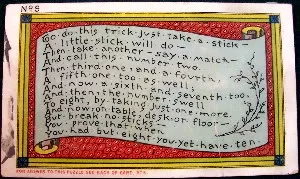 No. 8
To do this trick just take a stick -
A little stick will do -
Then take another - say a match -
And call this number two.
Then third one and a fourth,
A fifth one too as well,
And now a sixth and seventh too.
And then the number swell
To eight, by taking just one more.
And now on table, desk or floor -
But break no sticks -
You prove that when
You had but eight you yet have ten.
FOR ANSWER TO THIS PUZZLE SEE BACK OF CARD